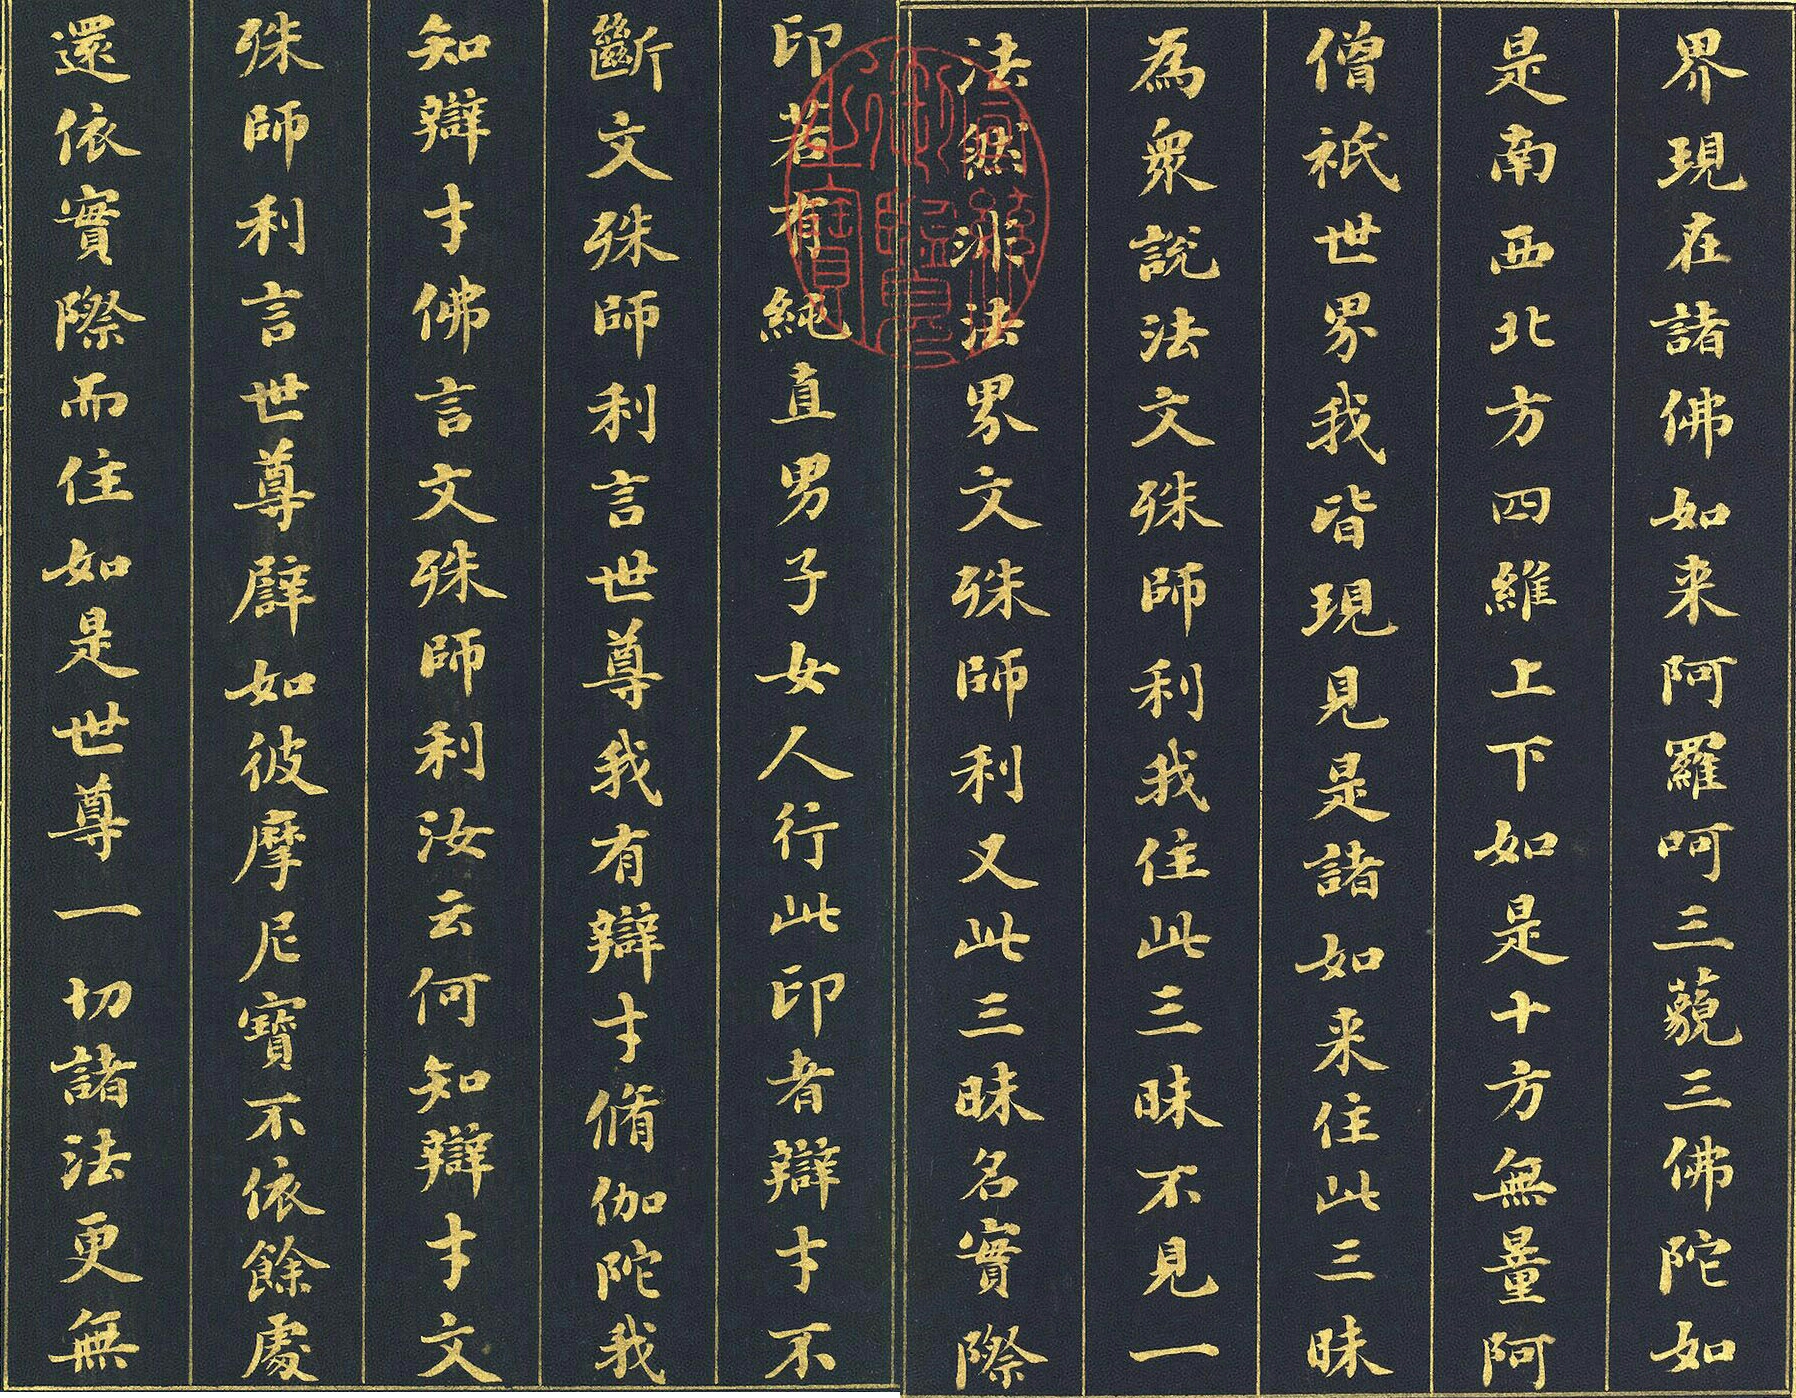 界現在諸佛如来阿羅呵三藐三佛陀如
是南西北方四維上下如是十方無量阿
僧祇世界我皆現見是諸如来住此三昧
為衆說法文殊師利我住此三昧不見一
法然非法界文殊師利又此三昧名實際
印若有純直男子女人行此印者辯才不
斷文殊師利言世尊我有辯才脩伽陀我
知辯才佛言文殊師利汝云何知辯才文
殊師利言世尊譬如彼摩尼寶不依餘處
還依實際而住如是世尊一切諸法更無
宣統御覽之寶